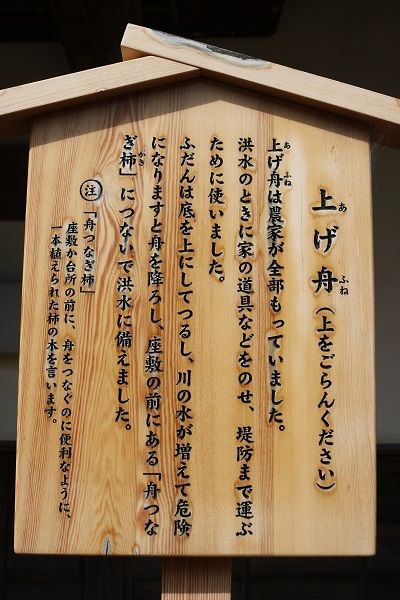 上げ舟（上をごらんください）
上げ舟は農家が全部もっていました。
洪水のときに家の道具などをのせ、堤防まで運ぶ
ために使いました。
ふだんは底を上にしてつるし、川の水が増えて危険
になりますと舟を降ろし、座敷の前にある「舟つな
ぎ柿」につないで洪水に備えました。
注「舟つなぎ柿」
座敷か台所の前に、舟をつなぐのに便利なように、
一本植えられた柿の木を言います。
あ ふね
あ ふね
かき